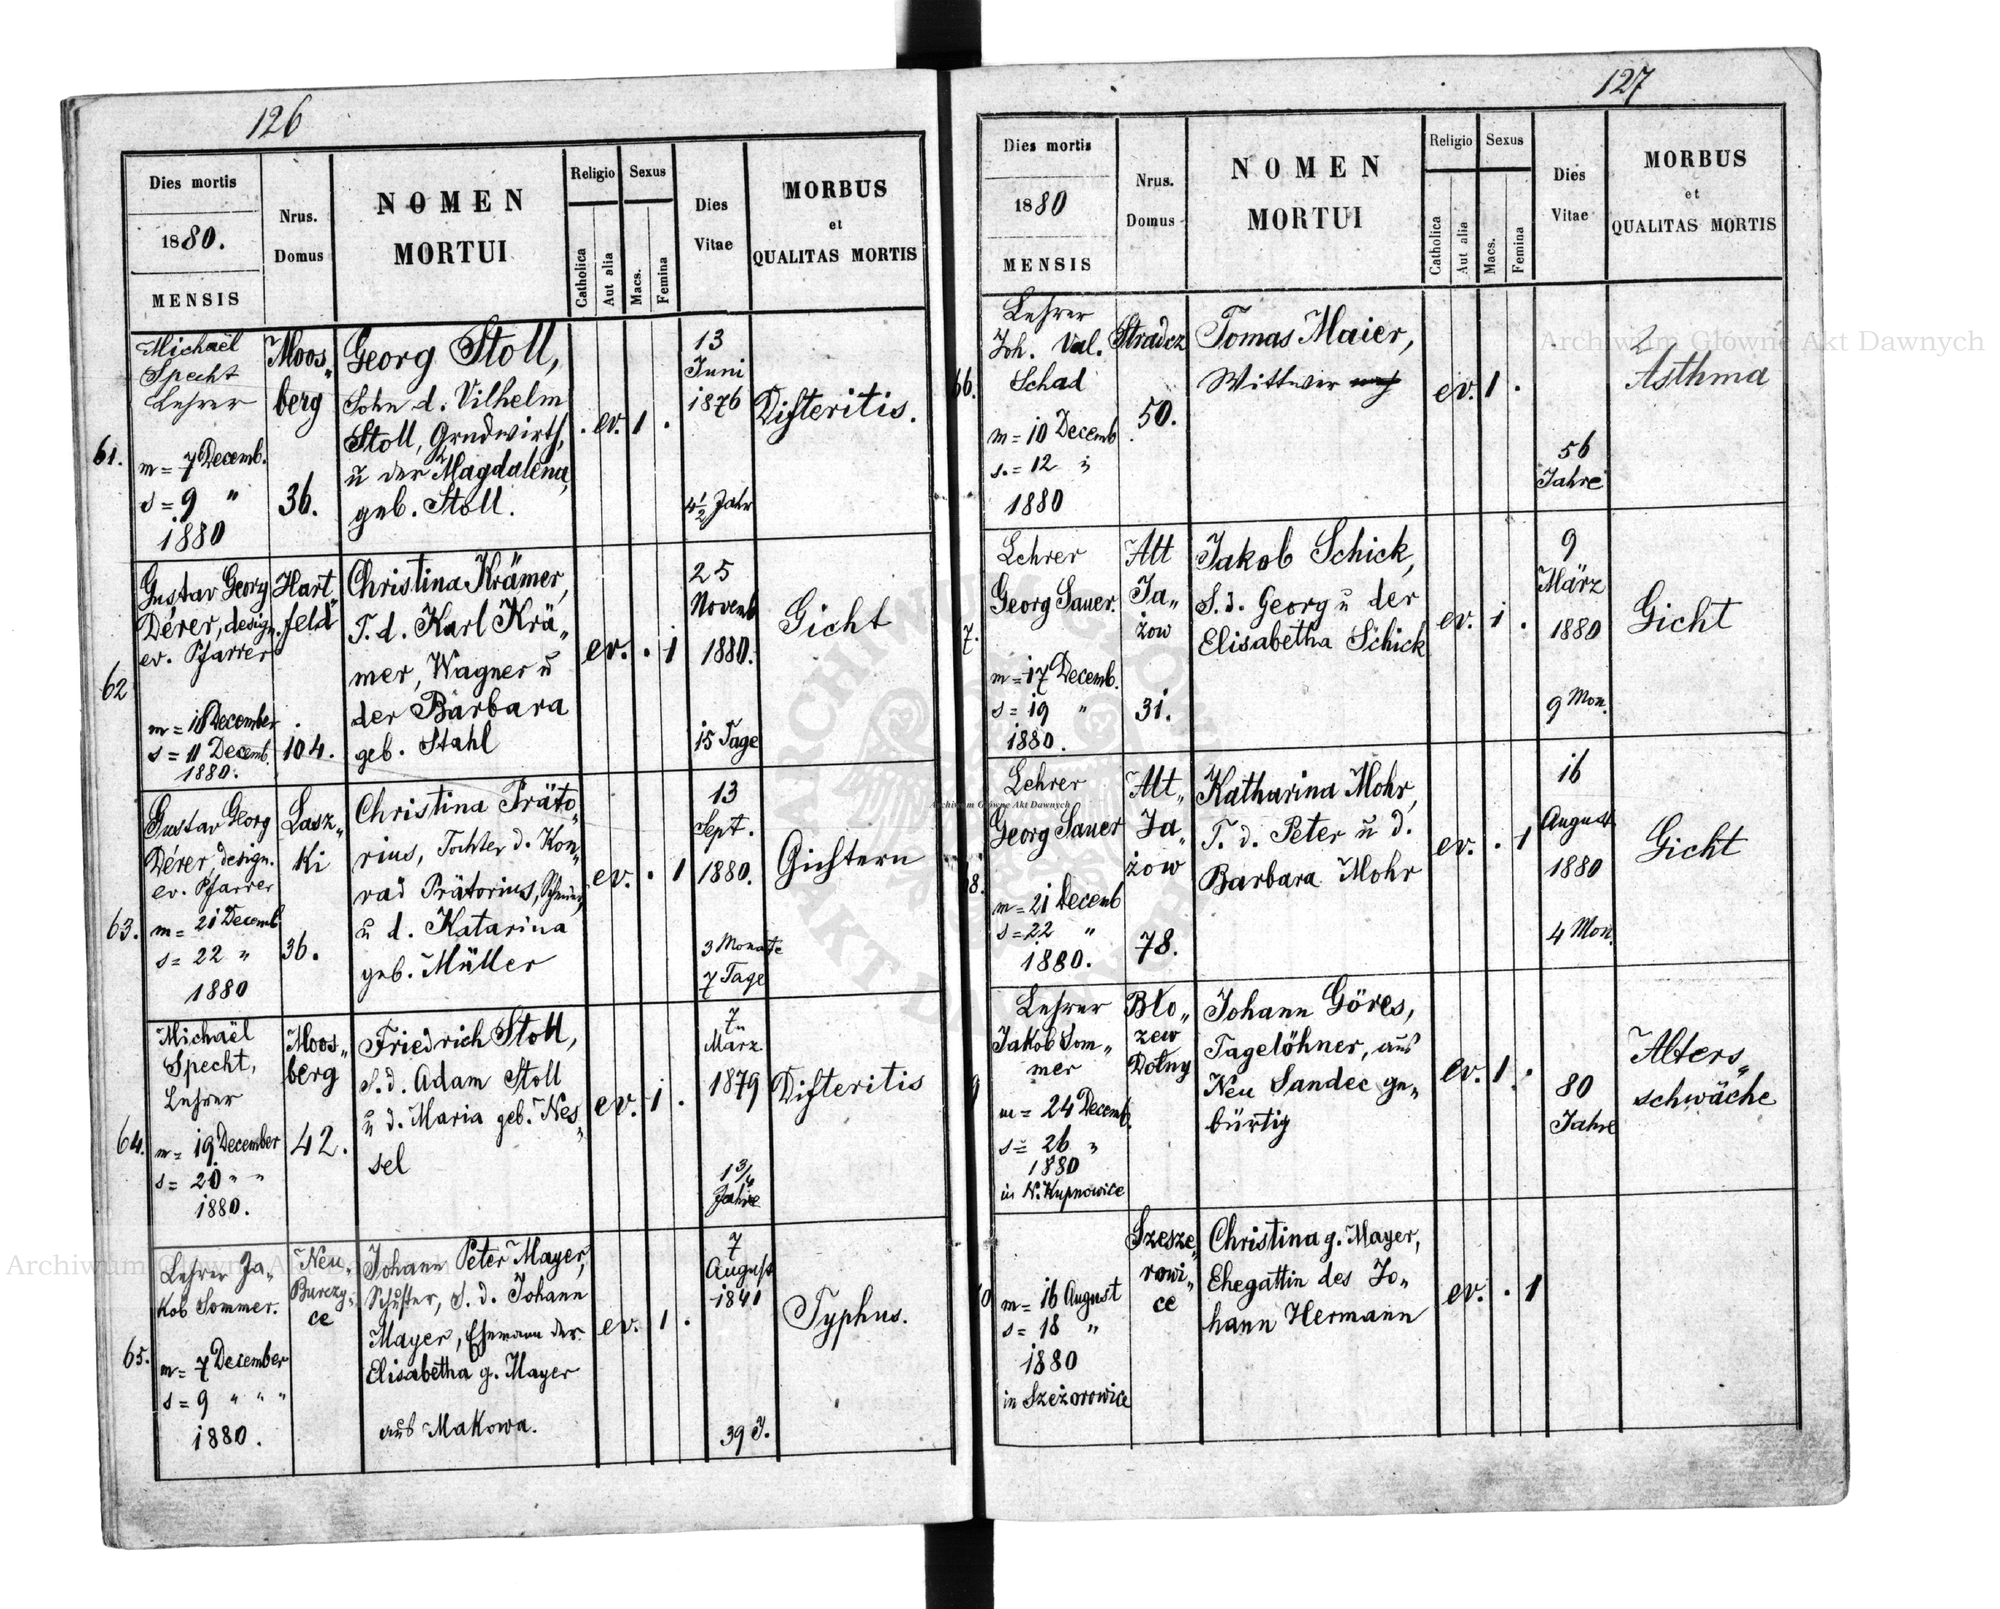 126
Dies mortis
1880.
MENSIS
Nrus.
Domus
NOMEN
MORTUI
Religio
Catholica
Aut alia
Sexus
Macs.
Femina
Dies
Vitae
MORBUS
et
QUALITAS MORTIS
61.
Michaël
Specht
Lehrer
m = 7 Decemb.
s = 9 "
1880
Moos„
berg
36.
Georg Stoll,
Sohn d. Vilhelm
Stoll, Grndwirth,
u der Magdalena,
geb. Stoll.
ev. 1 .
13
Juni
1876
4 1/2 Jahr
Difteritis.
62
Gustav Georg
Dérer, design.
ev. Pfarrer
m = 10 December
s = 11 Decemb.
1880.
Hart„
feld
104.
Christina Krämer,
T. d. Karl Krä„
mer, Wagner u
der Barbara
geb. Stahl
ev. . 1
25
Novemb
1880.
15 Tage
Gicht
63.
Gustav Georg
Dérer, design.
ev. Pfarrer
m = 21 Decemb
s = 22 "
1880
Lasz„
Ki
36.
Christina Präto„
rius, Tochter d. Kon„
rad Prätorius,
u d. Katarina
geb. Müller
ev. . 1
13
Sept.
1880.
3 Monate
7 Tage
Gichtern
64.
Michaël
Specht,
Lehrer
m = 19 December
s = 20 " "
1880.
Moos„
berg
42.
Friedrich Stoll,
S. d. Adam Stoll
u d. Maria geb. Nes„
sel
ev. 1 .
7
März
1879
1 3/4
Jahre
Difteritis
65.
Lehrer Ja„
kob Sommer.
m = 7 December
s = 9 " " "
1880.
Neu„
Burczy„
ce
Johann Peter Mayer,
Schuster, S. d. Johann
Mayer, Ehemann der
Elisabetha g. Mayer
aus Makowa.
ev. 1 .
7
August
1841
39 J.
Typhus.
127
Dies mortis
1880
MENSIS
Nrus.
Domus
NOMEN
MORTUI
Religio
Catholica
Aut alia
Sexus
Macs.
Femina
Dies
Vitae
MORBUS
et
QUALITAS MORTIS
66.
Lehrer
Joh. Val.
Schad
m = 10 Decemb
s. = 12 "
1880
Stradcz
50.
Tomas Maier,
Wittwer
ev. 1 .
56
Jahre
Asthma
7.
Lehrer
Georg Sauer.
m = 17 Decemb.
s = 19 "
1880.
Alt
Ja„
żow
31.
Jakob Schick,
S. d. Georg u der
Elisabetha Schick
ev. 1 .
9
März
1880
9 Mon.
Gicht
8.
Lehrer
Georg Sauer
m = 21 Decemb
s = 22 "
1880.
Alt„
Ja„
żow
78.
Katharina Mohr,
T. d. Peter u d.
Barbara Mohr
ev. . 1
16
August
1880
4 Mon.
Gicht
9
Lehrer
Jakob Som„
mer
m = 24 Decemb.
s = 26 "
1880
in N. Kupnowice
Blo„
zew
Dolny
Johann Göres,
Tagelöhner, aus
Neu Sandec ge„
bürtig
ev. 1 .
80
Jahre
Alters„
schwäche
0
m = 16 August
s = 18 "
1880
in Szeżorowice
Szesze„
rowi„
ce
Christina g. Mayer,
Ehegattin des Jo„
hann Hermann
ev. . 1
Archiwum Główne Akt Dawnych
Archiwum Główne Akt Dawnych
Archiwum Główne Akt Dawnych
ARCHIWUM GŁÓWNE
AKT DAWNYCH